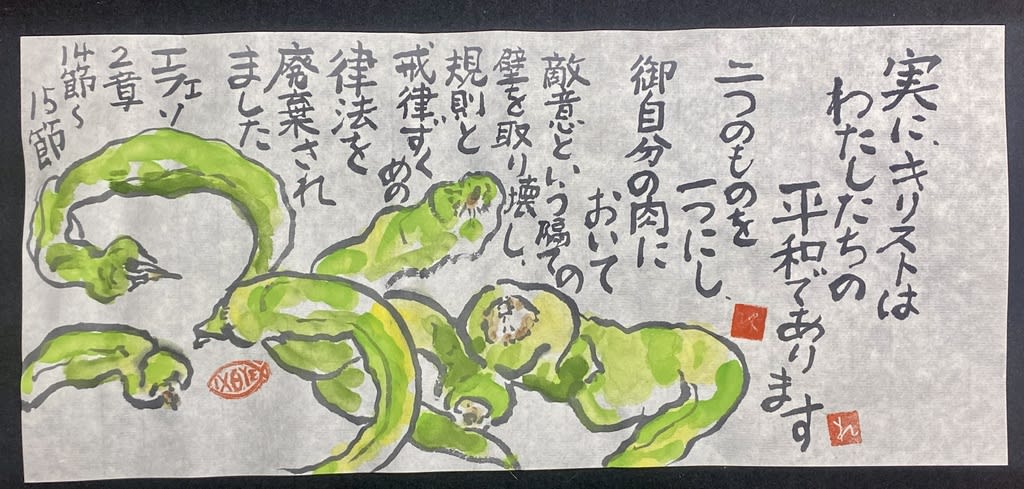 実に、キリストは
わたしたちの
平和であります
二つのものを
一つにし、
御自分の肉に
おいて
敵意という隔ての
壁を取り壊し、
規則と
戒律ずくめの
律法を
廃棄され
ました
エフェソ
2章
14節〜
15節